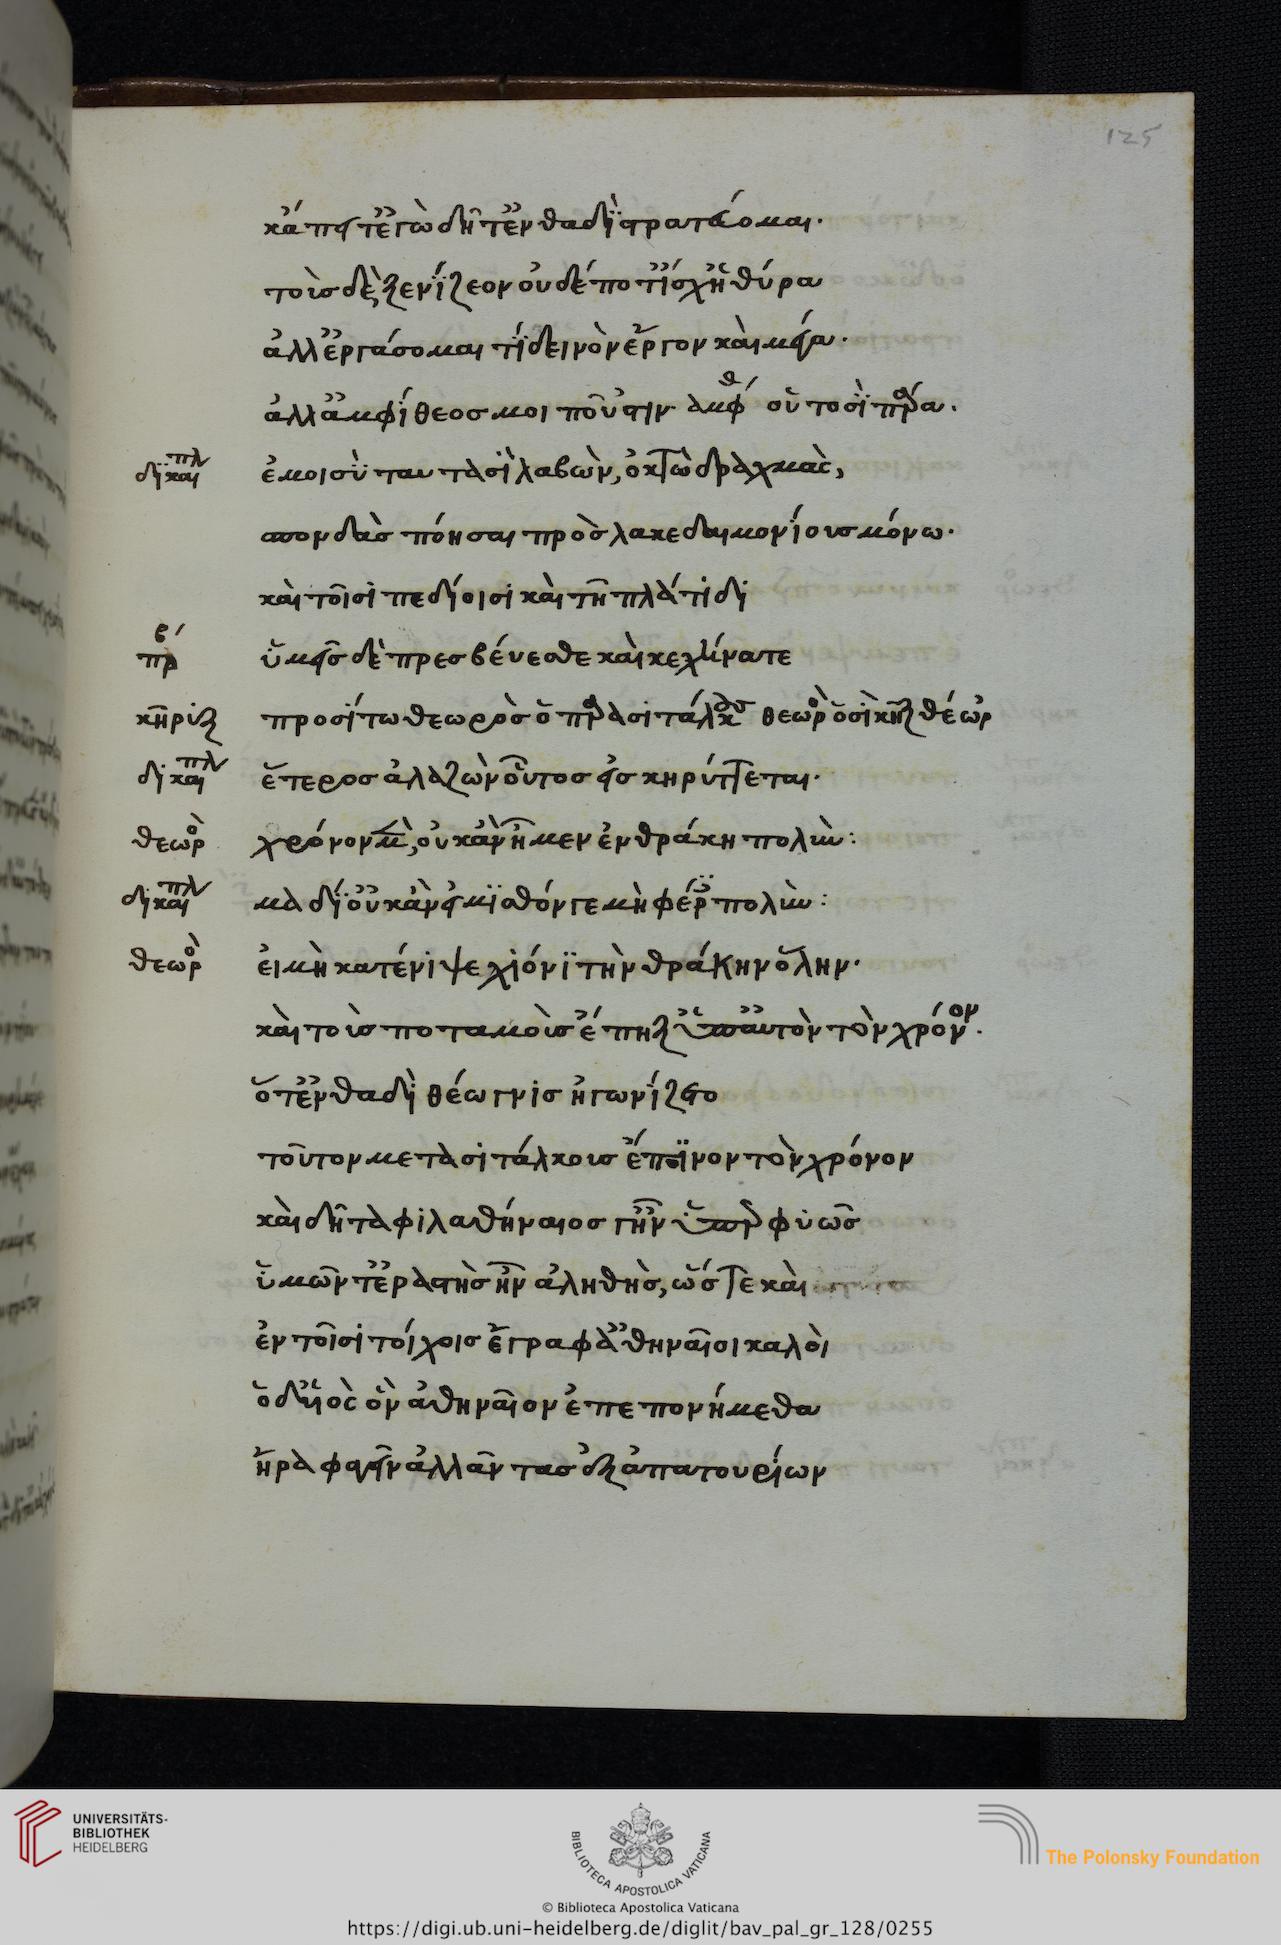 125
κἄπειτ' ἐγὼ δῆτ' ἐνθαδὶ στρατεύομαι.
τοὺς δὲ ξενίζειν οὐδέποτ' ἴσχῃ θύρα
ἀλλ' ἐργάσομαί τι δεινὸν ἔργον καὶ μέγα.
ἀλλ' ἀμφίθεος μοι ποῦ 'στιν ἀμφθ οὑτοσὶ πάρα.
δικαιπλ ἐμοὶ σὺ ταυτασὶ λαβὼν, ὀκτὼ δραχμὰς,
σπονδὰς πόησαι πρὸς λακεδαιμονίους μόνῳ.
καὶ τοῖσι πεδίοισι καὶ τῇ πλάτιδι
πρβ ὑμεῖς δὲ πρεσβεύεσθε καὶ κεχήνατε
κῆριξ προσίτω θεωρὸς ὁ παρὰ σιτάλκους θεωρ ὁσὶ κῆξ θέωρ
δικαιπλ ἕτερος ἀλαζὼν οὗτος εἰσκηρύττεται.
θεωρ χρόνον μὲν, οὐκ ἂν ἦμεν ἐν θράκῃ πολὺν:
δικαιπλ μὰ δί' οὐκ ἂν εἰ μισθόν γε μὴ φέρεις πολὺν:
θεωρ εἰ μὴ κατένιψε χιόνι τὴν θράκην ὅλην.
καὶ τοὺς ποταμοὺς ἔπηξ' ὑπ' αὐτὸν τὸν χρόνον.
ὅτ' ἐνθαδὶ θέωγνις ἠγωνίζετο
τοῦτον μετὰ σιτάλκους ἔπινον τὸν χρόνον
καὶ δῆτα φιλαθήναιος γ' ἦν ὑπερφυῶς
ὑμῶν τ' ἐραστὴς ἦν ἀληθὴς, ὥστε καὶ
ἐν τοῖσι τοίχοις ἔγραφ' ἀθηναῖσι καλοὶ
ὁ δ' υἱὸς ὃν ἀθηναῖον ἐπεπονήμεθα
ἤρα φαγεῖν ἀλλᾶντας ἐξ ἀπατουρίων
UNIVERSITÄTS-
BIBLIOTHEK
HEIDELBERG
BIBLIOTECA APOSTOLICA VATICANA
The Polonsky Foundation
© Biblioteca Apostolica Vaticana
https://digi.ub.uni-heidelberg.de/diglit/bav_pal_gr_128/0255